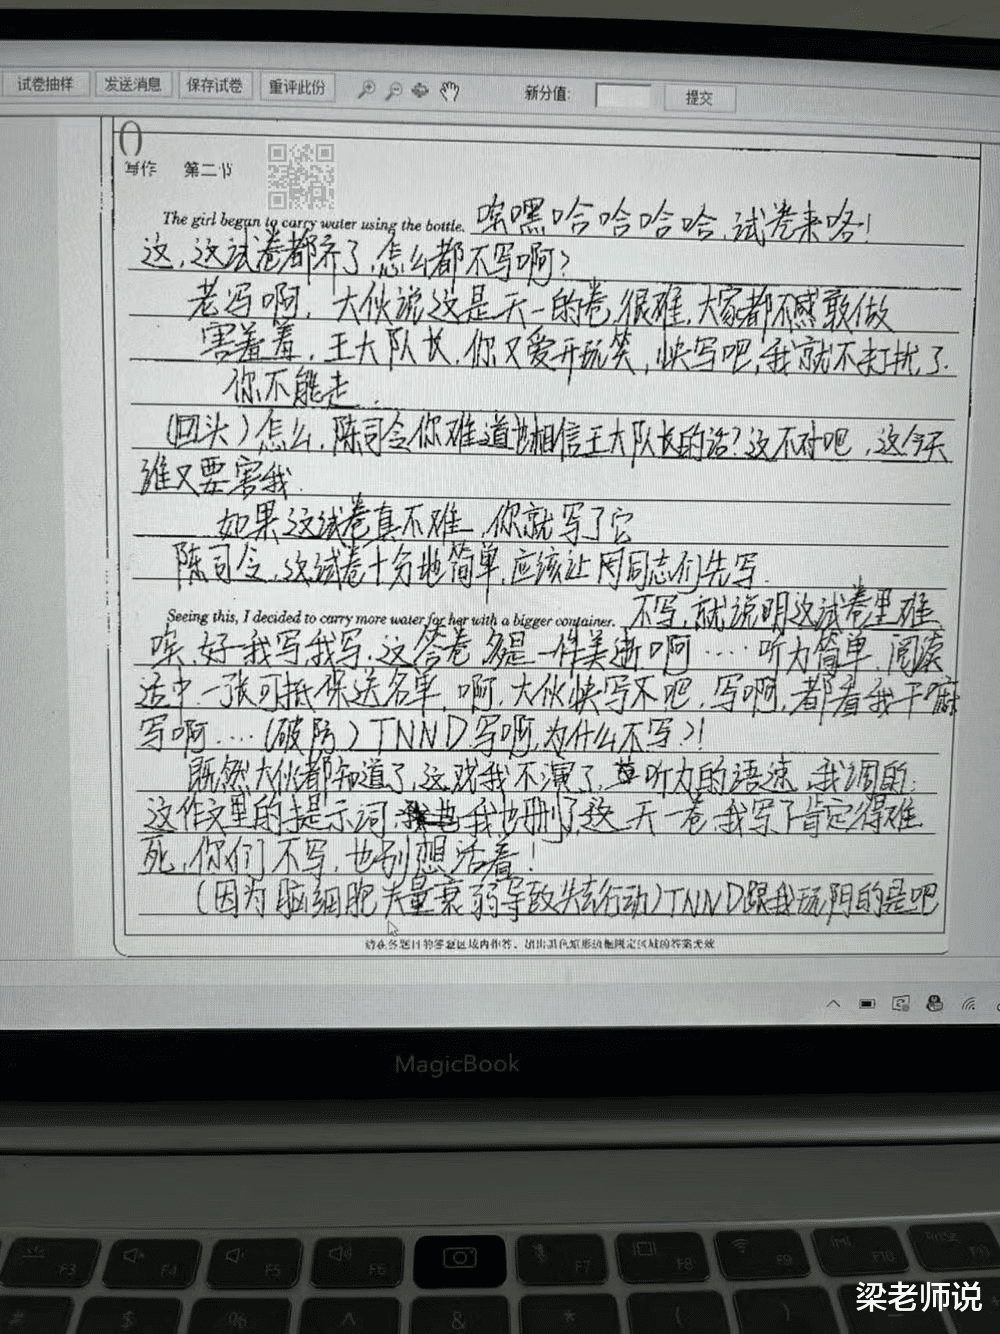 试卷抽样 发送消息 保存试卷 重评此份 新分值: 提交
写作 第二节
The girl began to carry water using the bottle. 嘿哈哈哈哈,试卷来咯!
这,这试卷都齐了,怎么都不写啊?
老冯啊,大伙说这是天一的卷,很难,大家都不感敢做
害羞羞,王大队长,你又爱开玩笑,快写吧,我就不打扰了.
你不能走..
(回头)怎么,陈司令你难道也相信王大队长的话?这不对吧,这今天
谁又要害我.
如果这试卷真不难,你就写了它
陈司令,这试卷十分地简单,应该让同志们先写.
Seeing this, I decided to carry more water for her with a bigger container. 不写,就说明这试卷里难
好我写我写,这答卷多是一件美逝啊····听力简单,阅读
适中一张可抵保送名单,啊,大伙快写不吧,写啊,都看我干嘛
写啊....(破防)TNND,写啊,为什么不写?!
既然大伙都知道了,这戏我不演了,听力的语速,我调的;
这作文里的提示词,我也删了,这天一卷,我写了肯定得难
死,你们不写,也别想活着!
(因为脑细胞大量衰弱导致失去行动)TNND跟我玩阴的是吧
请在各题目的答题区域内作答,超出黑色矩形边框限定区域的答案无效
MagicBook
F3 F4 F5 F6 F7 F8 F9 F10
% ^ & * ( )
梁老师说